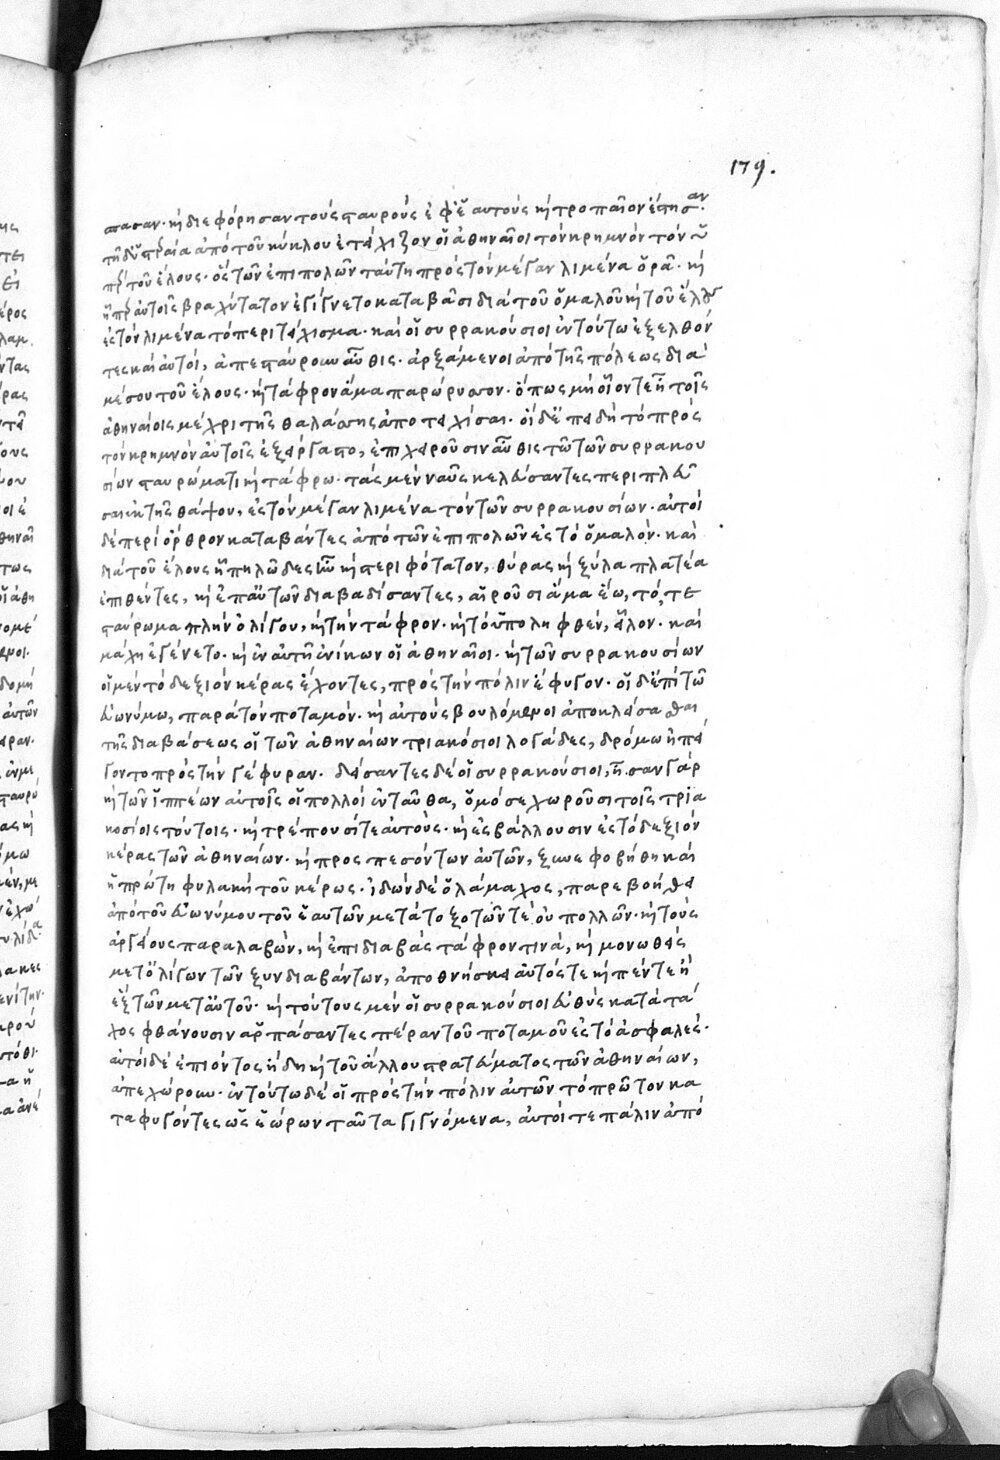 179.
σπασαν· καὶ διεφόρησαν τοὺς σταυροὺς ἐφ' ἑαυτοὺς καὶ τροπαῖον ἔστησαν.
τῇ δ' ὑστεραία ἀπὸ τοῦ κύκλου ἐτείχιζον οἱ ἀθηναῖοι τὸν κρημνὸν τὸν ὑ
πὲρ τοῦ ἕλους· ὃς τῶν ἐπιπολῶν ταύτη πρὸς τὸν μέγαν λιμένα ὁρᾶ· καὶ
ἥπερ αὐτοῖς βραχύτατον ἐγίγνετο καταβᾶσι διὰ τοῦ ὁμαλοῦ καὶ τοῦ ἕλους
ἐς τὸν λιμένα τὸ περιτείχισμα· καὶ οἱ συρρακούσιοι ἐν τούτω ἐξελθόν
τες καὶ αὐτοὶ, ἀπεσταύρουν αὖθις· ἀρξάμενοι ἀπὸ τῆς πόλεως διὰ
μέσου τοῦ ἕλους· καὶ τάφρον ἅμα παρώρυσσον· ὅπως μὴ οἷόν τε ἦ τοῖς
ἀθηναίοις μέχρι τῆς θαλάσσης ἀποτειχίσαι· οἱ δ' ἐπειδὴ τὸ πρὸς
τὸν κρημνὸν αὐτοῖς ἐξείργαστο, ἐπιχειροῦσιν αὖθις τῶ τῶν συρρακου
σίων σταυρώματι καὶ τάφρω· τὰς μὲν ναῦς κελεύσαντες περιπλεῦ
σαι ἐκ τῆς θάψου, ἐς τὸν μέγαν λιμένα τὸν τῶν συρρακουσίων· αὐτοὶ
δὲ περὶ ὄρθρον καταβάντες ἀπὸ τῶν ἐπιπολῶν ἐς τὸ ὁμαλὸν· καὶ
διὰ τοῦ ἕλους ἧ πηλῶδες ἦν καὶ στεριφότατον, θύρας καὶ ξύλα πλατέα
ἐπιθέντες, καὶ ἐπ' αὐτῶν διαβαδίσαντες, αἱροῦσιν ἅμα ἕω, τό, τε
σταύρωμα πλὴν ὀλίγου, καὶ τὴν τάφρον· καὶ τὸ ὑποληφθὲν, εἷλον· καὶ
μάχη ἐγένετο· καὶ ἐν αὐτῆ ἐνίκων οἱ ἀθηναῖοι· καὶ τῶν συρρακουσίων
οἱ μὲν τὸ δεξιὸν κέρας ἔχοντες, πρὸς τὴν πόλιν ἔφυγον· οἱ δ' ἐπὶ τῶ
εὐωνύμω, παρὰ τὸν ποταμόν· καὶ αὐτοὺς βουλόμενοι ἀποκλείσασθαι
τῆς διαβάσεως οἱ τῶν ἀθηναίων τριακόσιοι λογάδες, δρόμω ἠπεί
γοντο πρὸς τὴν γέφυραν· δείσαντες δὲ οἱ συρρακούσιοι, ἦσαν γὰρ
καὶ τῶν ἱππέων αὐτοῖς οἱ πολλοὶ ἐνταῦθα, ὁμόσε χωροῦσι τοῖς τρια
κοσίοις τούτοις· καὶ τρέπουσί τε αὐτοὺς· καὶ ἐσβάλλουσιν ἐς τὸ δεξιὸν
κέρας τῶν ἀθηναίων· καὶ προσπεσόντων αὐτῶν, ξυνεφοβήθη καὶ
ἡ πρώτη φυλακὴ τοῦ κέρως· ἰδὼν δὲ ὁ λάμαχος, παρεβοήθει
ἀπὸ τοῦ εὐωνύμου τοῦ ἑαυτῶν μετὰ τοξοτῶν τὲ οὐ πολλῶν· καὶ τοὺς
ἀργείους παραλαβὼν, καὶ ἐπιδιαβὰς τάφρον τινὰ, καὶ μονωθεὶς
μετ' ὀλίγων τῶν ξυνδιαβάντων, ἀποθνήσκει αὐτός τε καὶ πέντε ἢ
ἓξ τῶν μετ' αὐτοῦ· καὶ τούτους μὲν οἱ συρρακούσιοι εὐθὺς κατὰ τά
χος φθάνουσιν ἁρπάσαντες πέραν τοῦ ποταμοῦ ἐς τὸ ἀσφαλές·
αὐτοὶ δὲ ἐπιόντος ἤδη καὶ τοῦ ἄλλου στρατεύματος τῶν ἀθηναίων,
ἀπεχώρουν· ἐν τούτω δὲ οἱ πρὸς τὴν πόλιν αὐτῶν τὸ πρῶτον κα
ταφυγόντες ὡς ἑώρων ταῦτα γιγνόμενα, αὐτοί τε πάλιν ἀπὸ